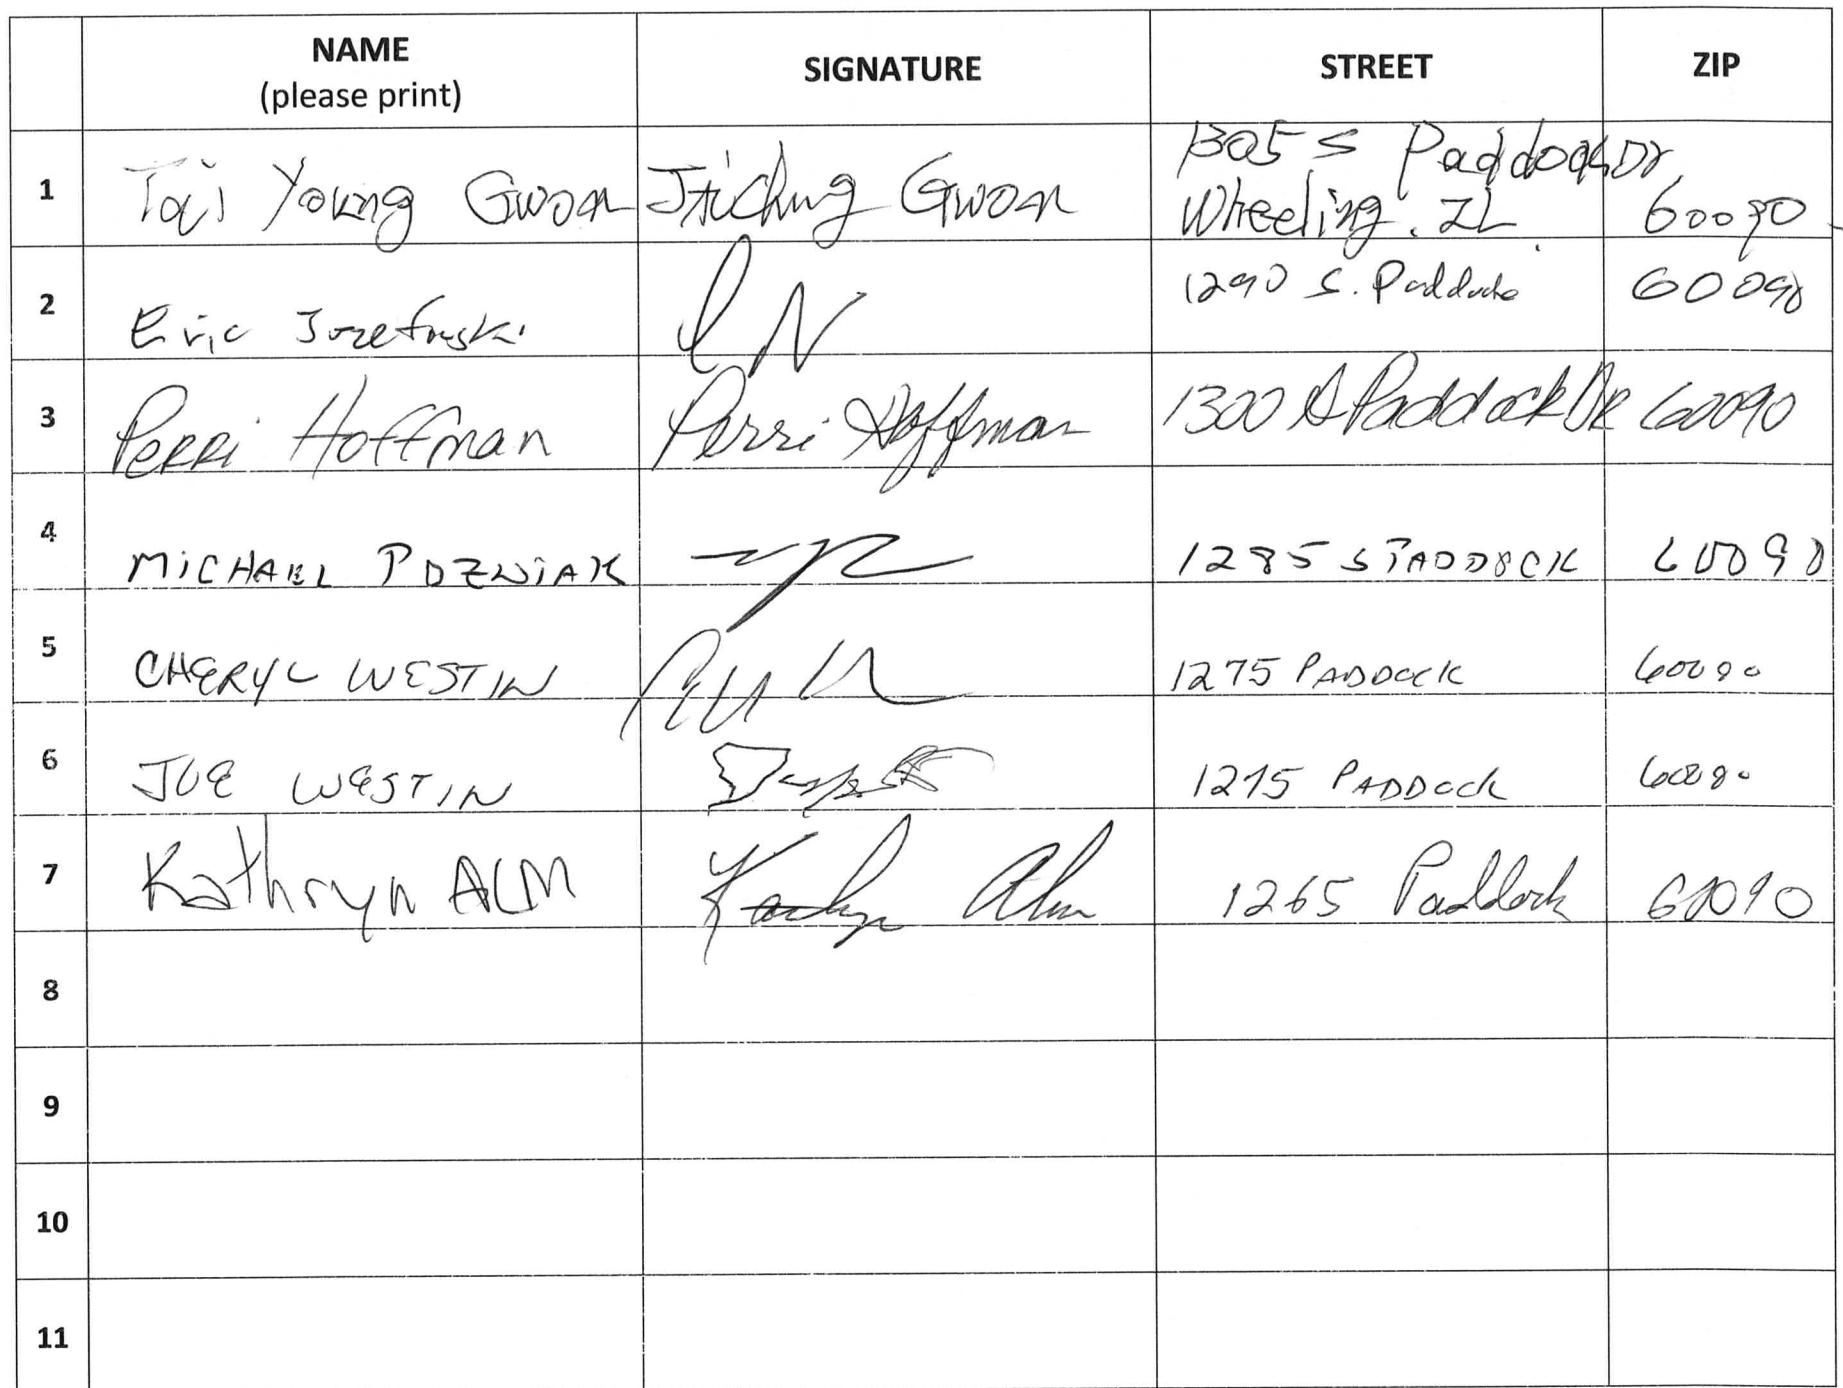 NAME SIGNATURE STREET ZIP
(please print)
1305 S Paddock Dr,
1 Tai Young Gwon Gwon Wheeling. IL 60090
2 Eric 1290 S. Paddock 60090
3 Perri Hoffman Perri Hoffman 1300 S Paddock DR 60090
4 MICHAEL POZNIAK 1285 S PADDOCK 60090
5 CHERYL WESTIN 1275 PADDOCK 60090
6 JOE WESTIN 1275 PADDOCK 60090
7 Kathryn ALM Kathryn Alm 1265 Paddock 60090
8
9
10
11